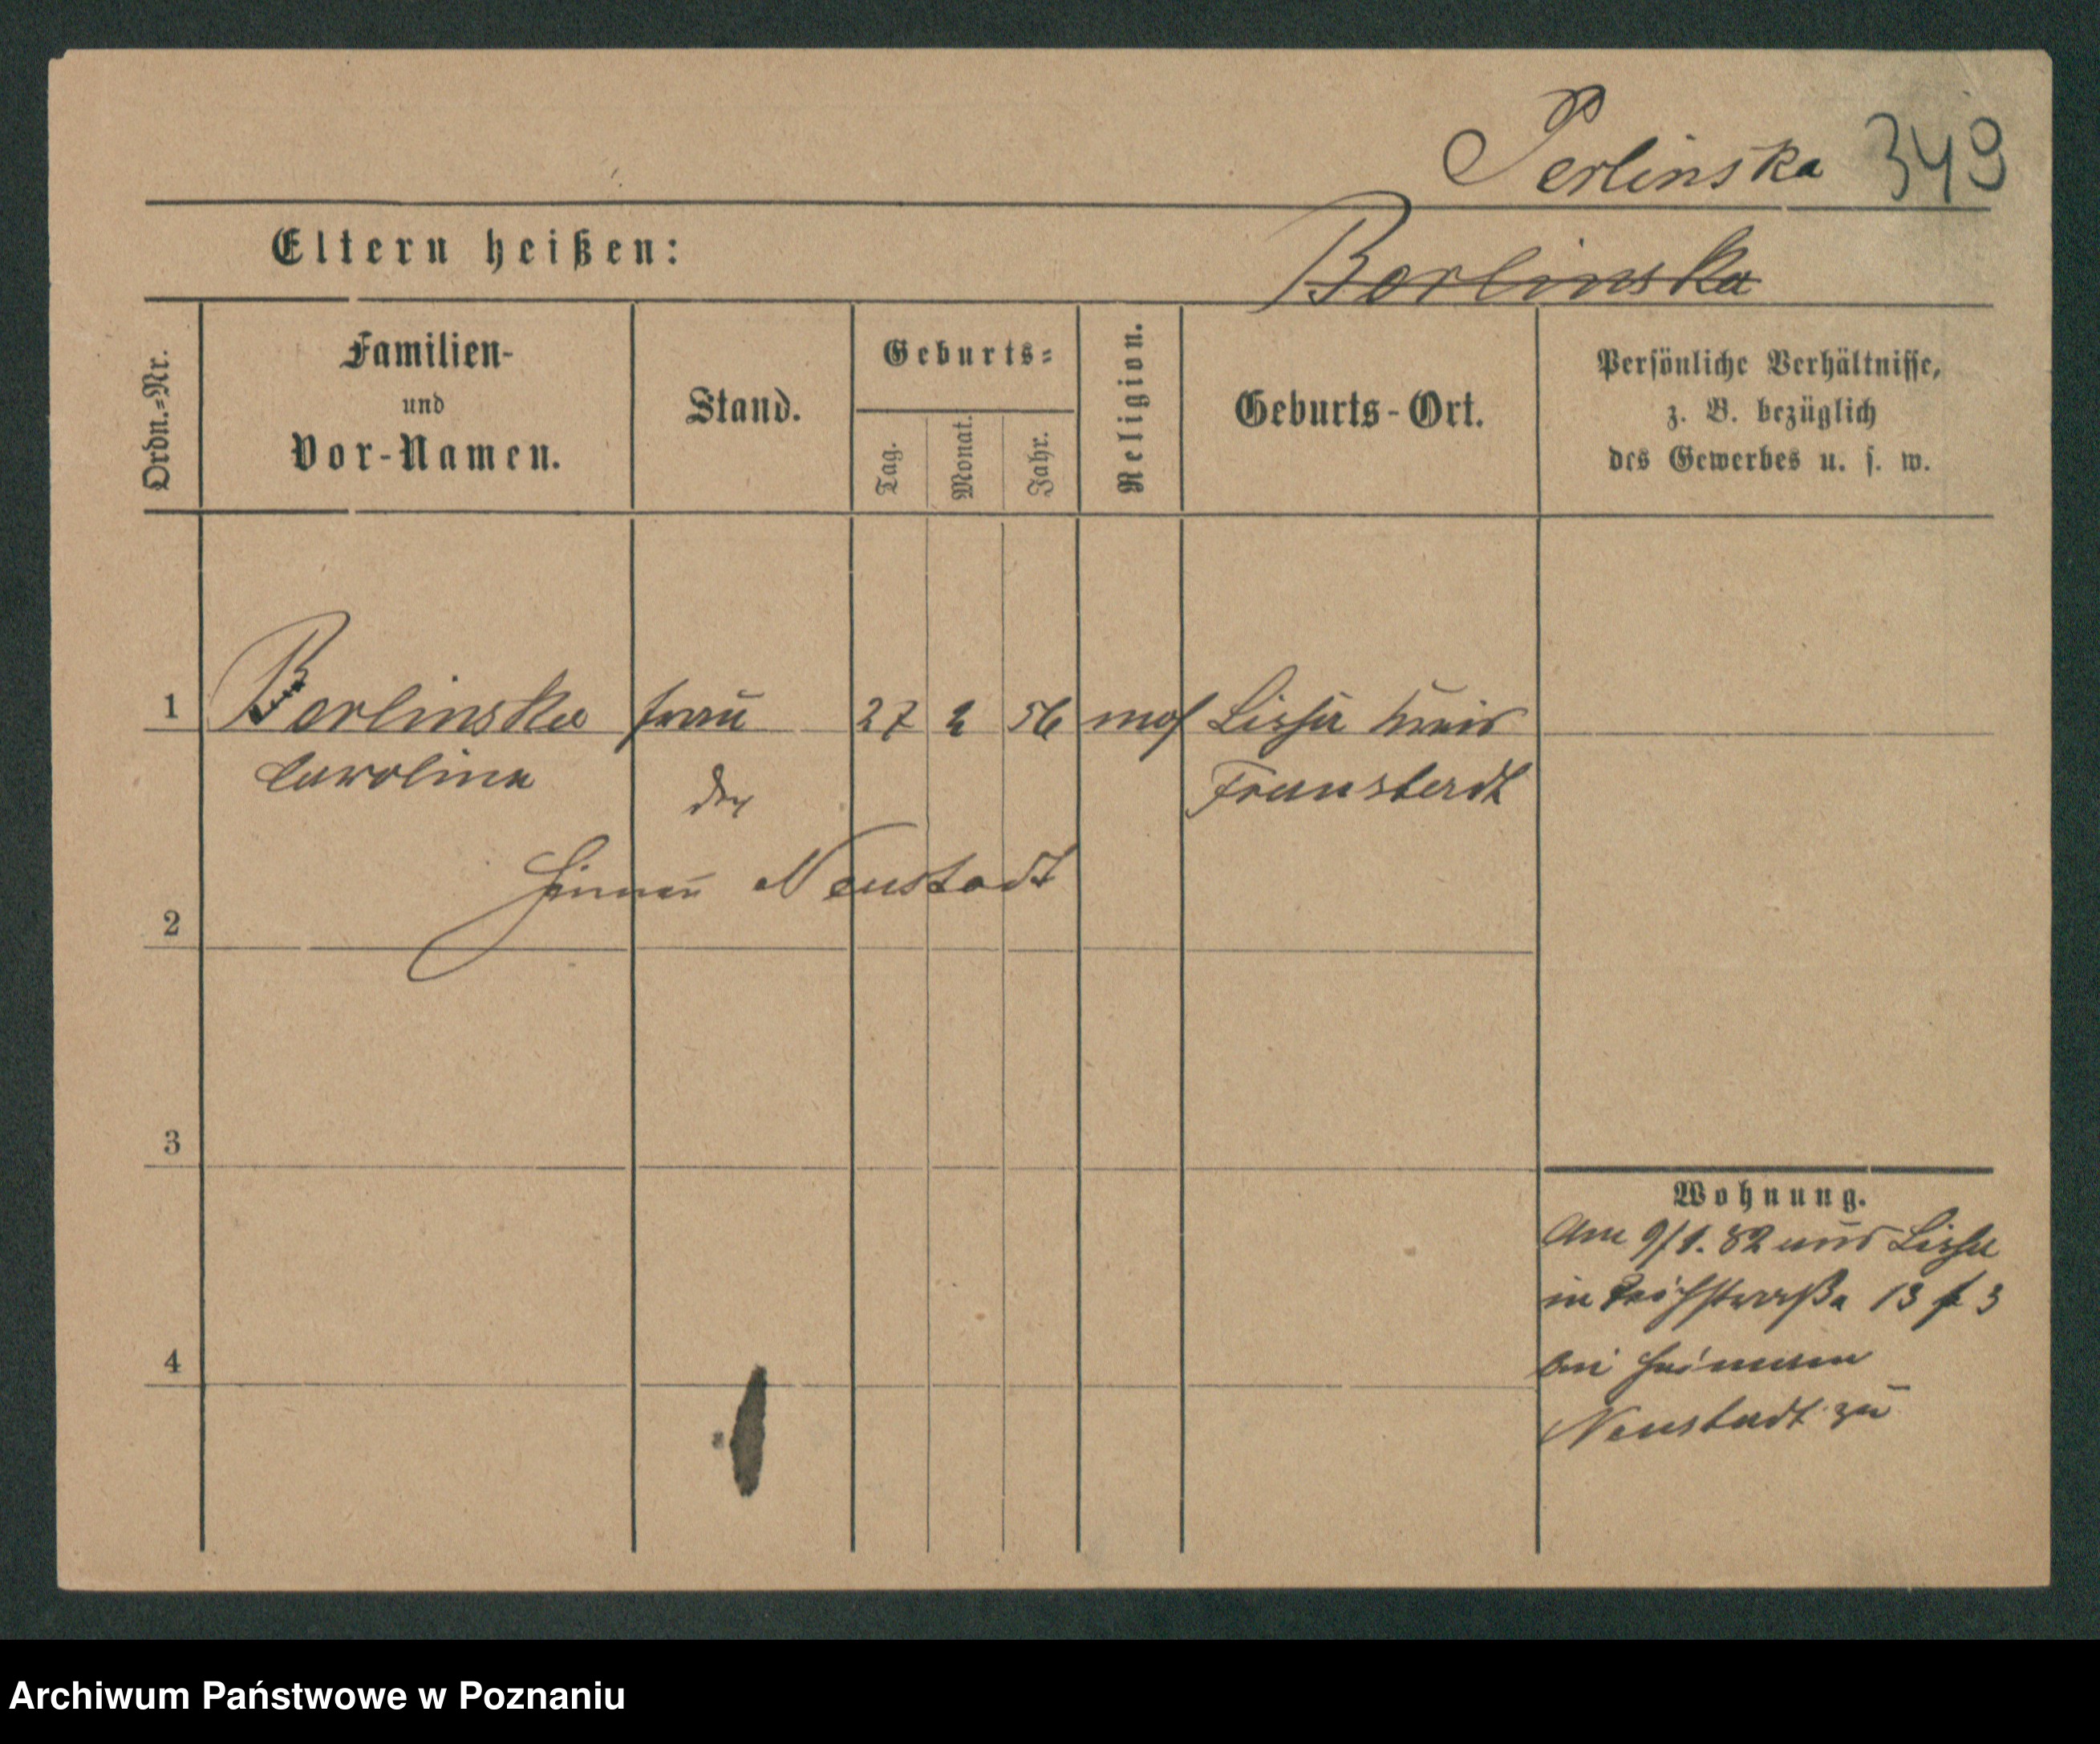 Perlinska 349
Eltern heißen: Berlinska
Ordn.=Nr.
Familien-
und
Vor-Namen.
Stand.
Geburts=
Tag.
Monat.
Jahr.
Religion.
Geburts-Ort.
Persönliche Verhältnisse,
z. B. bezüglich
des Gewerbes u. s. w.
1 Berlinska frau 27 2 56 mos Lissa Kreis
Carolina der Fraustadt
Neustadt
2
3
4
Wohnung.
Am 9/1. 82 aus Lissa
in 13 3
bei
Neustadt zu
Archiwum Państwowe w Poznaniu